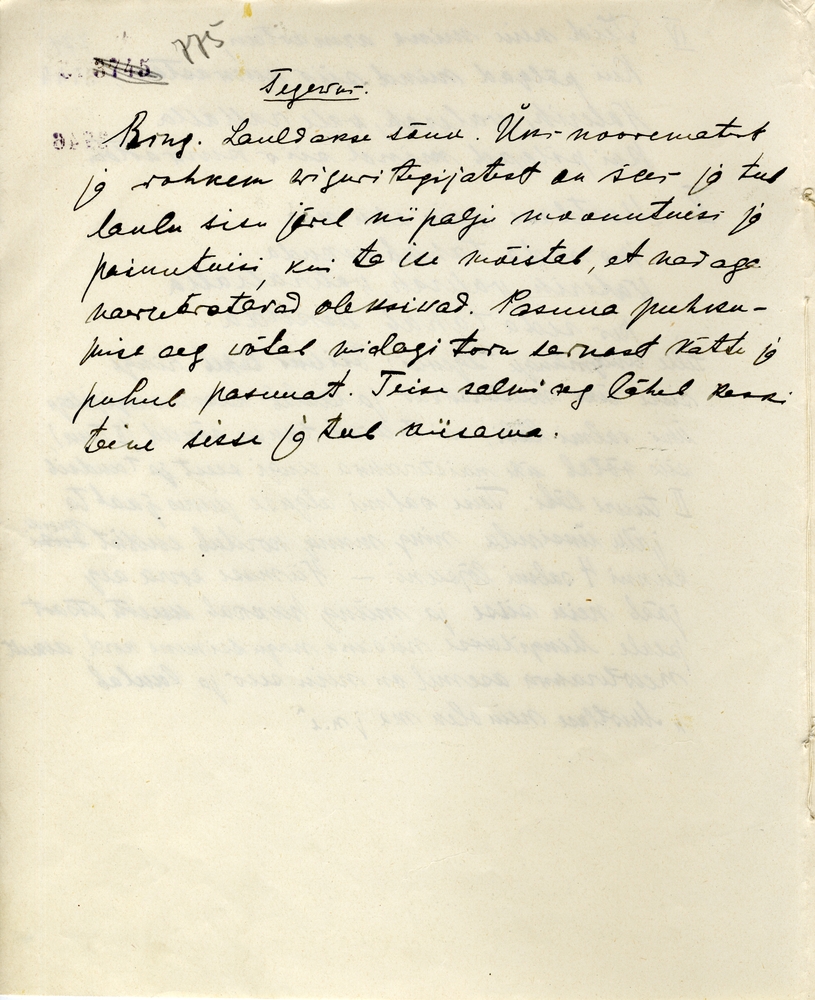 3745
775
Tegevus.
Ring. Lauldakse sõnu. Üks noorematest
ja rohkem wiguritegijatest on sees ja teeb
laulu sisu järel niipalju moonutusi ja
painutusi, kui ta ise mõistab, et nad aga
naeruäratavad oleksivad. Pasuna puhku-
mise aeg võtab midagi toru sarnast kätte ja
puhub pasunat. Teise salmi aeg läheb
teine sisse ja teeb niisama.